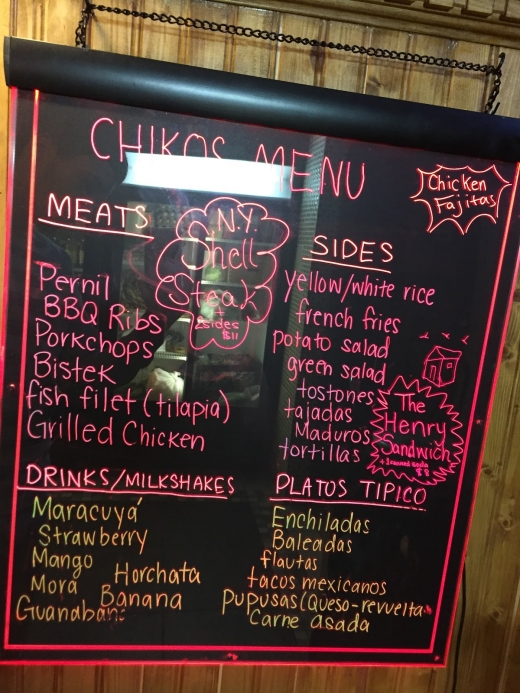 CHIKOS MENU
Chicken
Fajitas
MEATS
Pernil
BBQ Ribs
Porkchops
Bistek
fish filet (tilapia)
Grilled Chicken
N.Y.
Shell
Steak
+
2sides
$11
SIDES
yellow/white rice
french fries
potato salad
green salad
tostones
tajadas
Maduros
tortillas
The
Henry
Sandwich
$8
DRINKS/MILKSHAKES
Maracuyá
Strawberry
Mango
Horchata
Mora
Banana
Guanabana
PLATOS TIPICO
Enchiladas
Baleadas
flautas
tacos mexicanos
pupusas (Queso-revuelta)
Carne asada